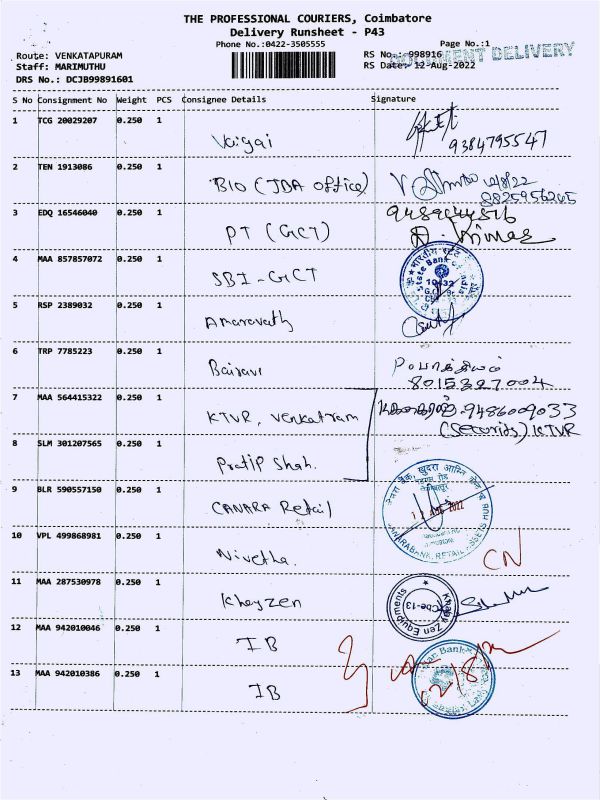 THE PROFESSIONAL COURIERS, Coimbatore
Delivery Runsheet - P43
Phone No.:0422-3505555
Page No.:1
Route: VENKATAPURAM
RS No.: 998916
DOCUMENT DELIVERY
Staff: MARIMUTHU
RS Date: 12-Aug-2022
DRS No.: DCJB99891601
S No Consignment No Weight PCS Consignee Details Signature
1 TCG 20029207 0.250 1 Vaigai 9384795547
2 TEN 1913086 0.250 1 BIO (JDA office) 12/8/22
8825956265
3 EDQ 16546040 0.250 1 PT (GCT)
4 MAA 857857072 0.250 1 SBI - GCT
State Bank of India
10432
5 RSP 2389032 0.250 1 Amaravathy
6 TRP 7785223 0.250 1 Bairavi
8015327004
7 MAA 564415322 0.250 1 KTVR, Venkatram 9486009033
(Security) KTVR
8 SLM 301207565 0.250 1 Pratip Shah.
9 BLR 590557150 0.250 1 CANARA Retail
12 AUG 2022
CANARA BANK, RETAIL ASSETS HUB
10 VPL 499868981 0.250 1 Nivetha. CN
11 MAA 287530978 0.250 1 Khayzen
Khay Zen Equipments
Cbe-13
12 MAA 942010046 0.250 1 IB
13 MAA 942010386 0.250 1 IB
12/8/22